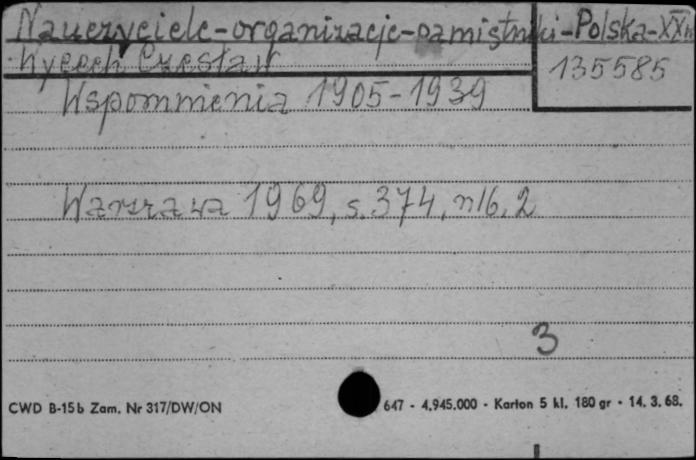 Nauczyciele-organizacje-pamiętniki-Polska-XXw
Wycech Czesław
135585
Wspomnienia 1905-1939
Warszawa 1969, s. 374, nlb. 2
3
CWD B-15b Zam. Nr 317/DW/ON
647 - 4.945.000 - Karton 5 kl. 180 gr - 14. 3. 68.